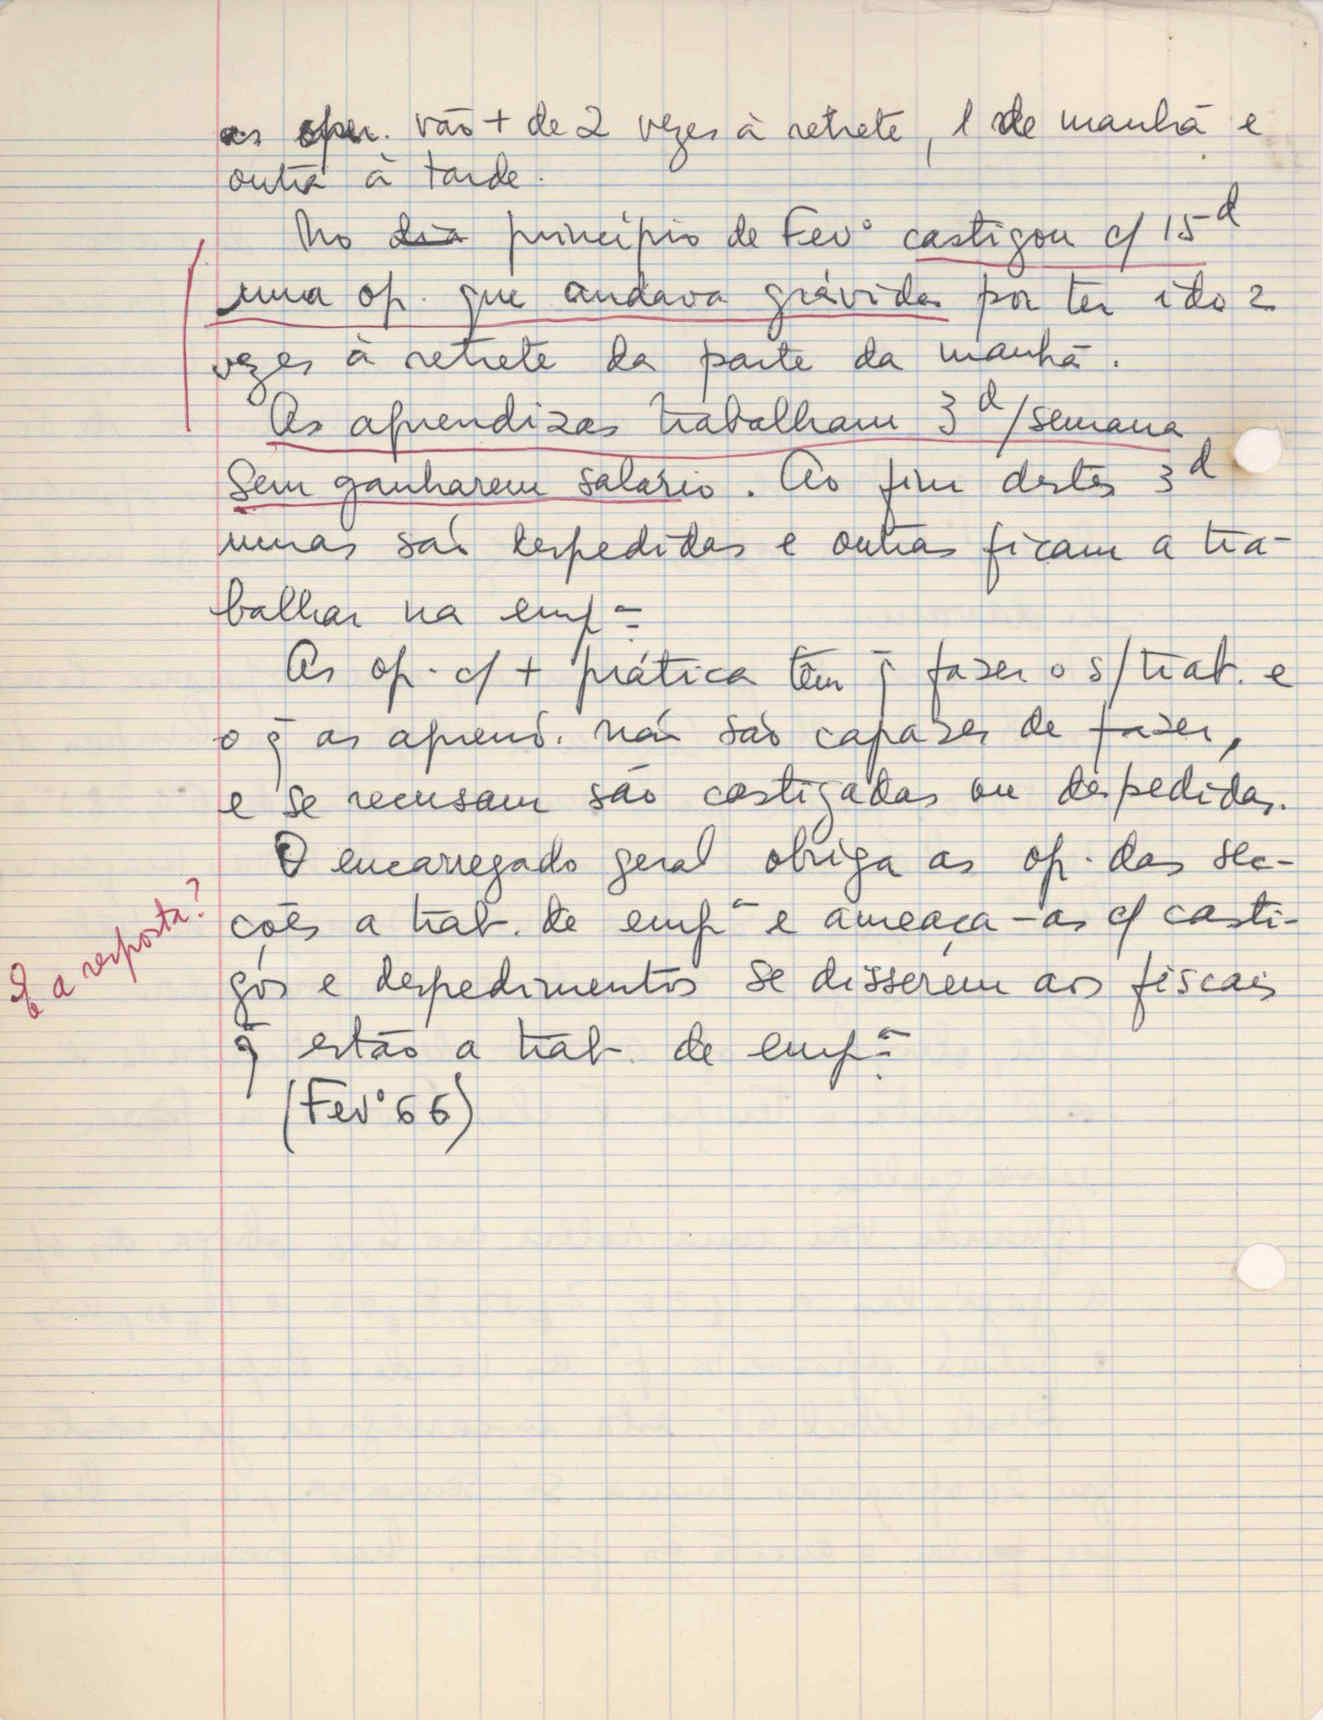 as oper. vão + de 2 vezes à retrete, 1 de manhã e
outra à tarde.
No dia princípio de Fevº castigou c/ 15d
uma op. que andava grávida por ter ido 2
vezes à retrete da parte da manhã.
As aprendizas trabalham 3d/semana
sem ganharem salário. Ao fim destes 3d
umas são despedidas e outras ficam a tra-
balhar na empª
As op. c/ + prática têm q̄ fazer o s/trab. e
o q̄ as aprend. não são capazes de fazer,
e se recusam são castigadas ou despedidas.
O encarregado geral obriga as op. das sec-
ções a trab. de empª e ameaça-as c/ casti-
gos e despedimentos se disserem aos fiscais
q̄ estão a trab. de empª
(Fevº 66)
a resposta?